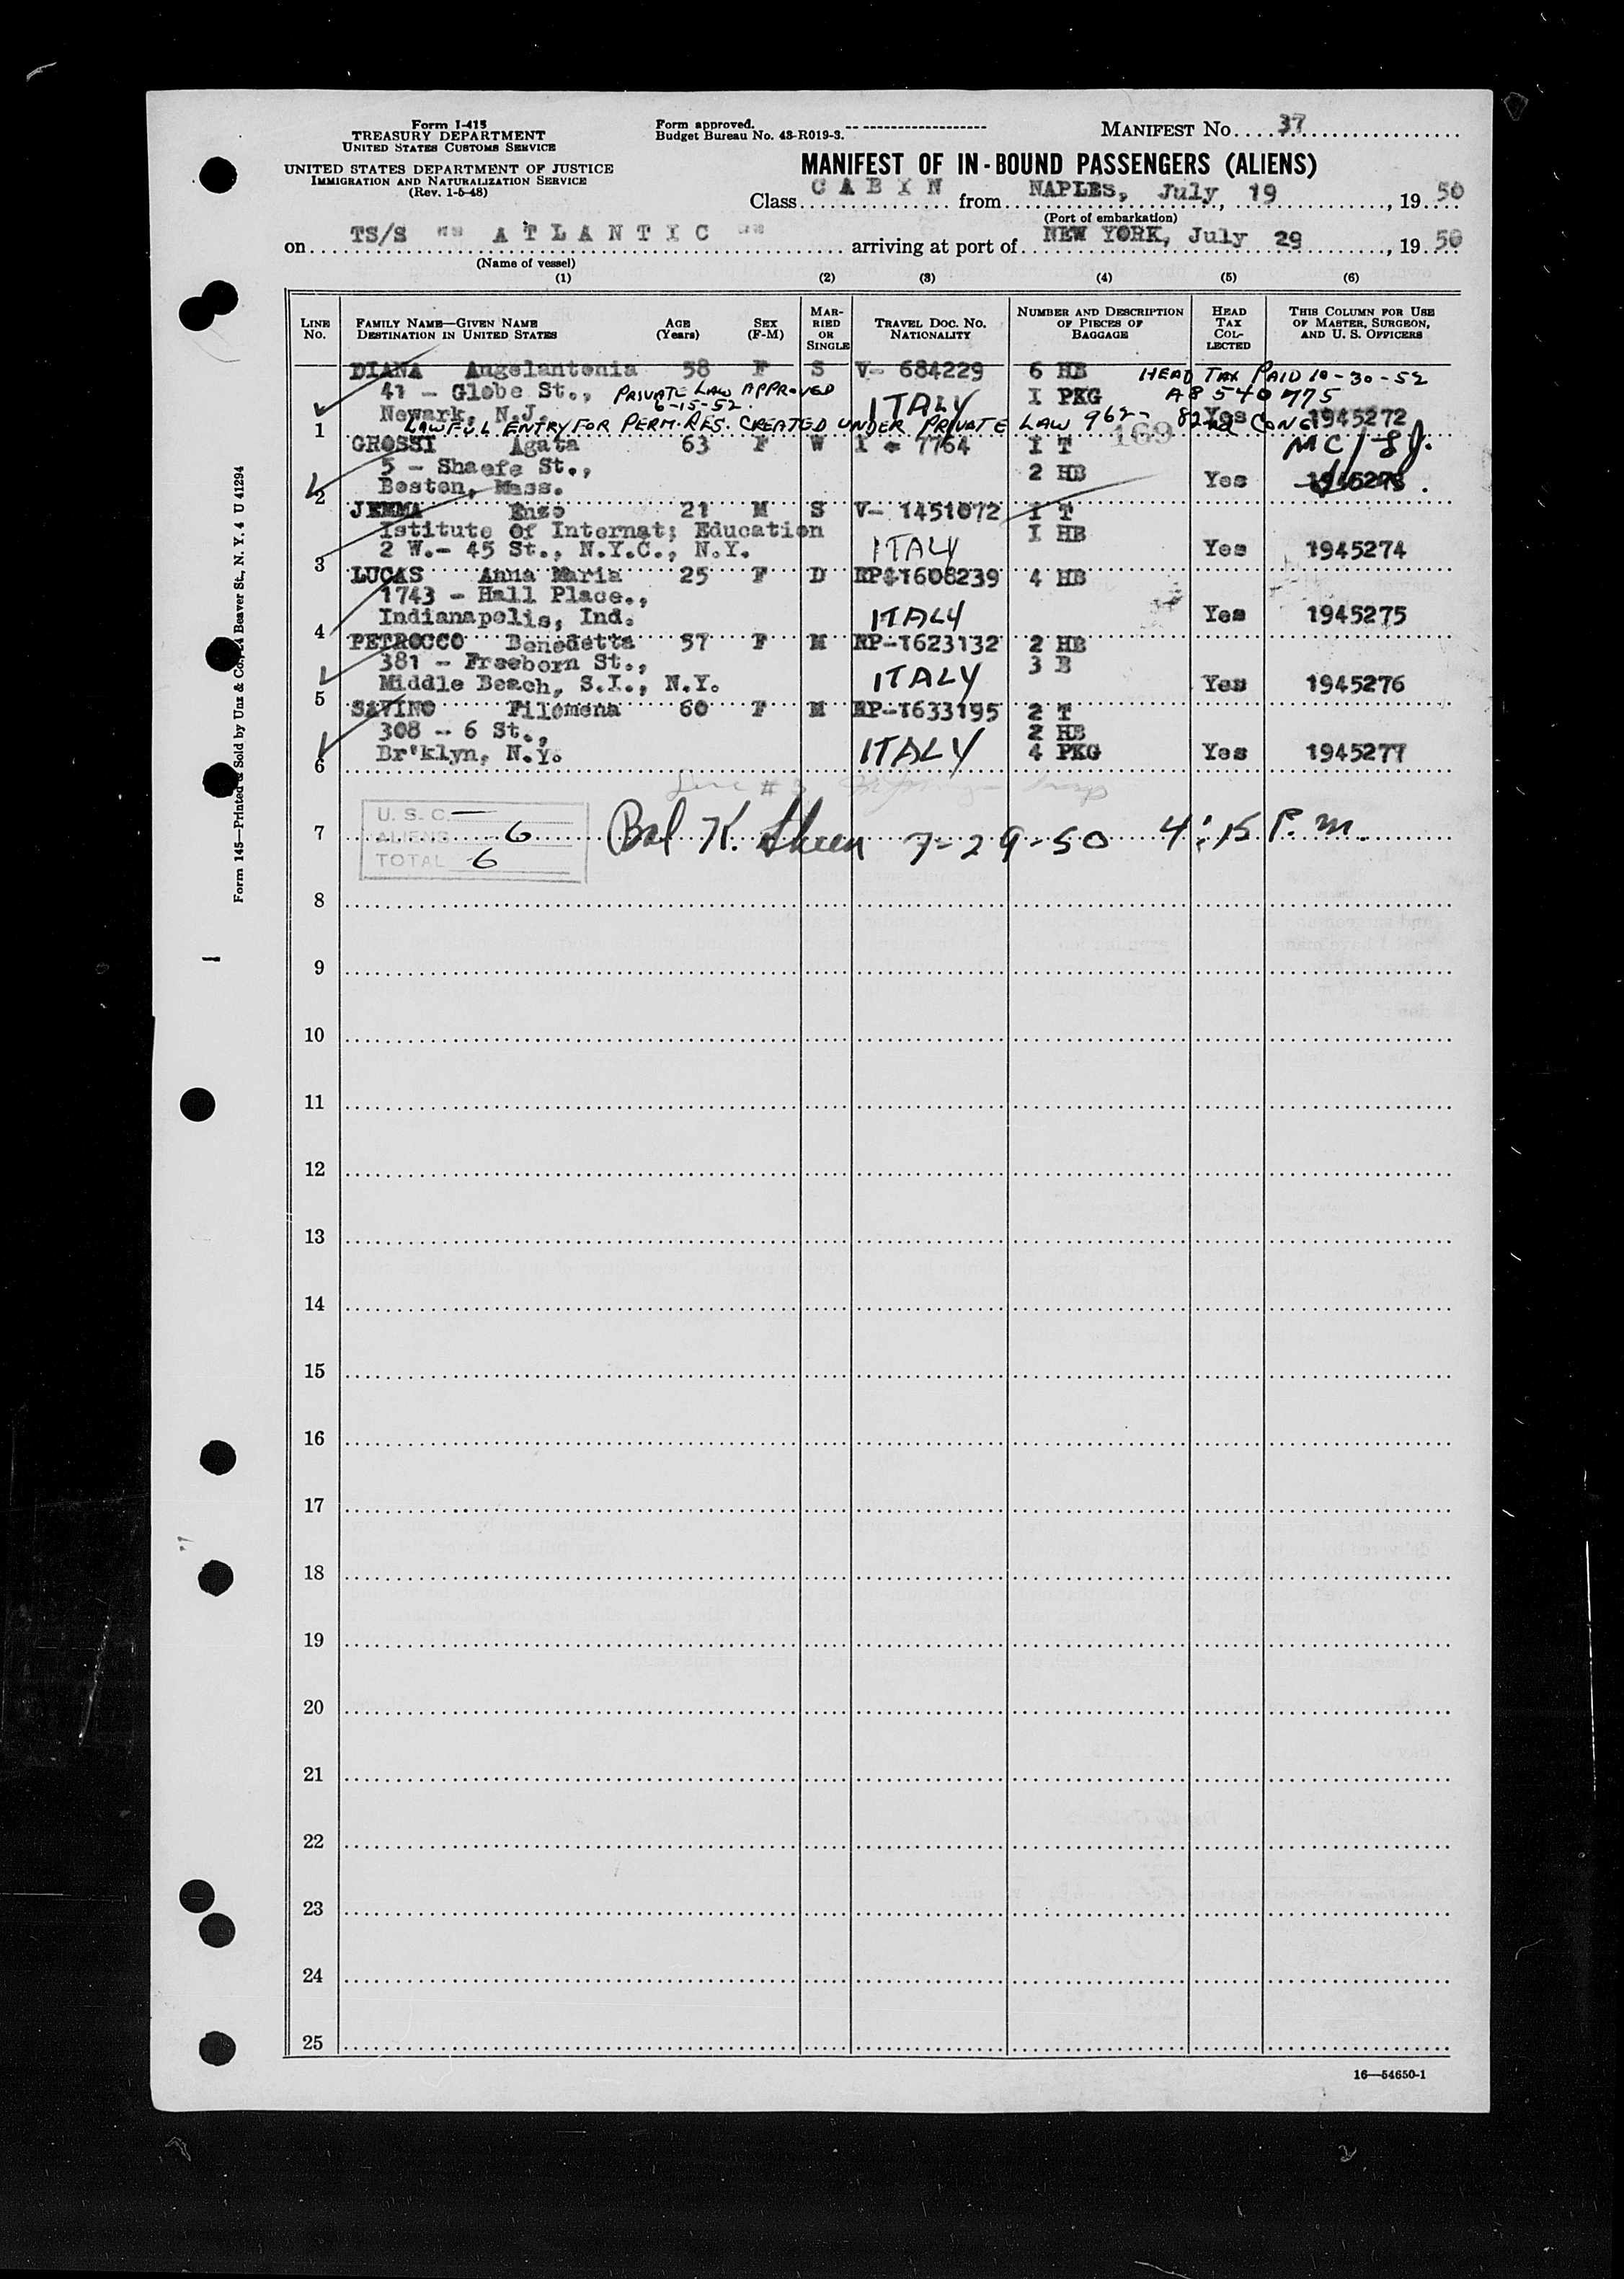 Form I-415
TREASURY DEPARTMENT
UNITED STATES CUSTOMS SERVICE
UNITED STATES DEPARTMENT OF JUSTICE
IMMIGRATION AND NATURALIZATION SERVICE
(Rev. 1-5-48)
Form approved.
Budget Bureau No. 43-R019-3.
MANIFEST No. 37
MANIFEST OF IN-BOUND PASSENGERS (ALIENS)
Class CABIN from NAPLES, July, 19, 1950
(Port of embarkation)
on TS/S "" ATLANTIC "" arriving at port of NEW YORK, July 29, 1950
(Name of vessel)
(1) (2) (3) (4) (5) (6)
LINE No. FAMILY NAME—GIVEN NAME DESTINATION IN UNITED STATES AGE (Years) SEX (F-M) MARRIED OR SINGLE TRAVEL DOC. NO. NATIONALITY NUMBER AND DESCRIPTION OF PIECES OF BAGGAGE HEAD TAX COLLECTED THIS COLUMN FOR USE OF MASTER, SURGEON, AND U. S. OFFICERS
DIANA Angelantonia 58 F S V- 684229 6 HB HEAD TAX PAID 10-30-52
41 - Globe St., PRIVATE LAW APPROVED I PKG A8 540 775
Newark, N.J. 6-15-52. ITALY Yes 1945272
1 LAWFUL ENTRY FOR PERM. RES. CREATED UNDER PRIVATE LAW 962- 82nd CONG.
169
GROSSI Agata 63 F W I = 7764 I T
5 - Sheafe St., 2 HB
2 Boston, Mass. Yes
JEMMA Enzo 21 M S V- 1451072 I T
Istitute of Internat; Education I HB
3 2 W.- 45 St., N.Y.C., N.Y. ITALY Yes 1945274
LUCAS Anna Maria 25 F D RP-1608239 4 HB
1743 - Hall Place.,
4 Indianapolis, Ind. ITALY Yes 1945275
PETROCCO Benedetta 57 F M RP-1623132 2 HB
381 - Freeborn St., 3 B
5 Middle Beach, S.I., N.Y. ITALY Yes 1945276
SAVINO Filomena 60 F M RP-1633195 2 T
308 - 6 St., 2 HB
6 Br'klyn, N.Y. ITALY 4 PKG Yes 1945277
U. S. C. —
7 ALIENS 6 7-29-50 4:15 P.m.
TOTAL 6
8
9
10
11
12
13
14
15
16
17
18
19
20
21
22
23
24
25
16—54650-1
Form 145—Printed & Sold by Unz & Co., 24 Beaver St., N. Y. 4 U 41294